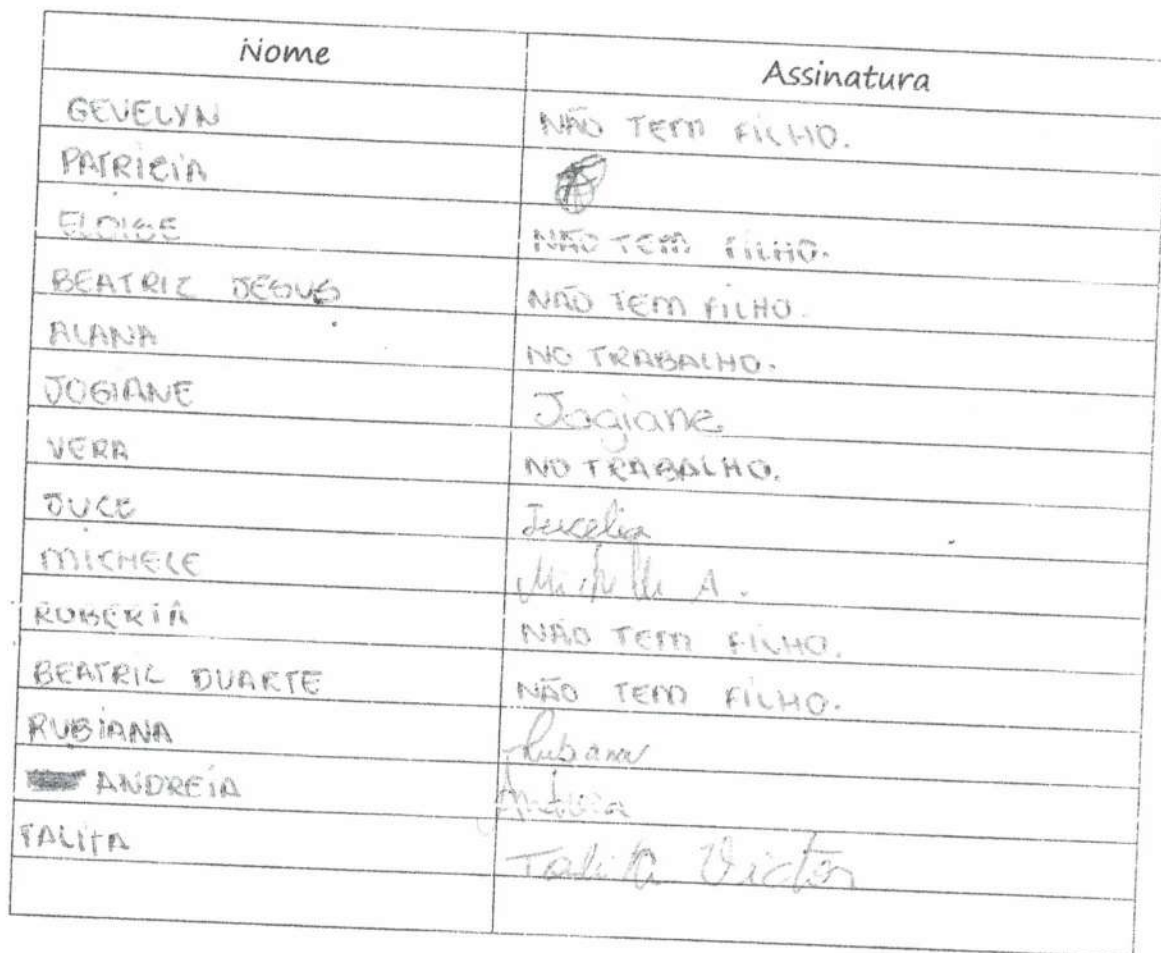 Nome Assinatura
GEVELYN NÃO TEM FILHO.
PATRICIA
ELOISE NÃO TEM FILHO.
BEATRIZ JESUS NÃO TEM FILHO.
ALANA NO TRABALHO.
JOSIANE Josiane
VERA NO TRABALHO.
JUCE Jucelia
MICHELE Michelli A.
ROBERTA NÃO TEM FILHO.
BEATRIZ DUARTE NÃO TEM FILHO.
RUBIANA Rubiana
ANDREIA Andreia
TALITA Talita Victor